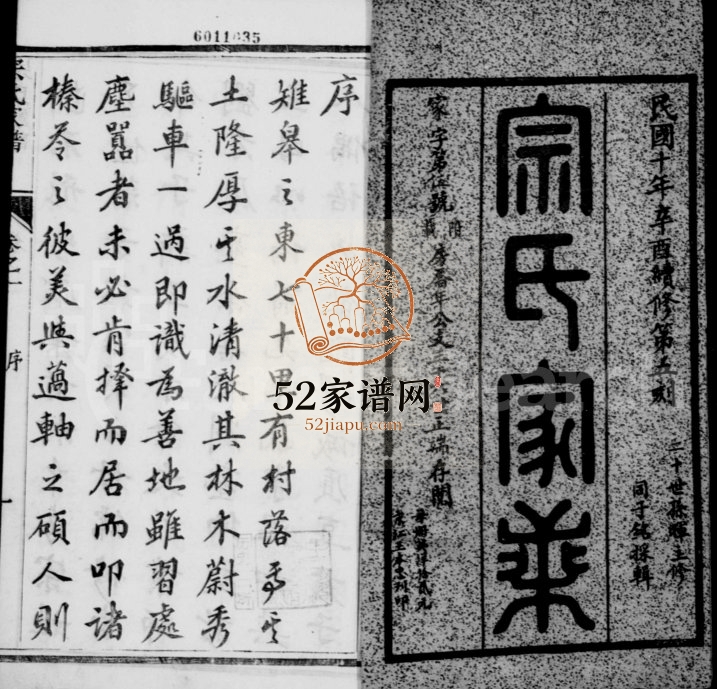 6011035
民國十年辛酉續修第五刻
三十世孫
主修
同子銘採輯
宗氏家乘
家字第
號
序
雉皋之東七十里有村落焉其
土隆厚其水清澈其林木蔚秀
驅車一過即識為善地雖習處
塵囂者未必肯擇而居而叩諸
榛苓之彼美與薖軸之碩人則
序
一
52家谱网
52jiapu.com